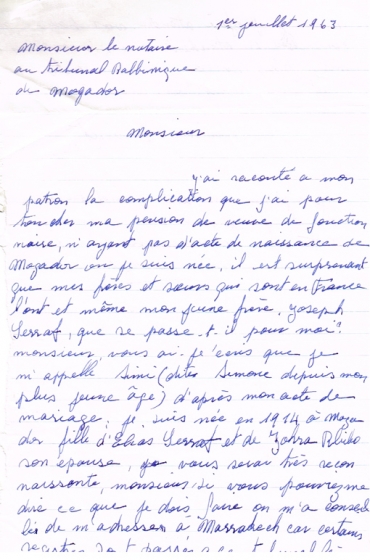 1er juillet 1963
Monsieur le notaire
au tribunal Rabbinique
de Mogador
Monsieur
J'ai raconté a mon
patron la complication que j'ai pour
toucher ma pension de veuve de fonction
naire, n'ayant pas d'acte de naissance de
Mogador ou je suis née, il est surprenant
que mes frères et sœurs qui sont en France
l'ont et même mon jeune frère, Joseph
Serraf, que se passe-t-il pour moi?
monsieur, vous ai-je écris que je
m'appelle Simi (dite Simone depuis mon
plus jeune âge) d'après mon acte de
mariage, je suis née en 1914 à Moga
dor fille d'Elias Serraf et de Zohra
son epouse, je vous serai très recon
naissante, monsieur, si vous pouvez me
dire ce que je dois faire on m'a conseil
lée de m'adresser à Marrackech car certains
registres sont passés a ce tribunal